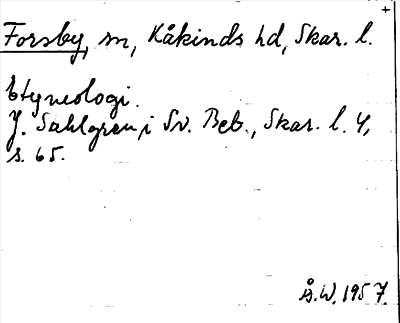 Forsby, sn, Kåkinds hd, Skar. l.
Etymologi.
J. Sahlgren i Sv. Beb., Skar. l. 4,
s. 65.
Å.W. 1957.